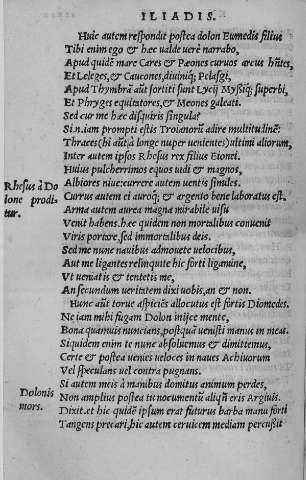 ILIADIS.
Huic autem respondit postea dolon Eumedis filius
Tibi enim ego & hæc ualde uere narrabo,
Apud quidẽ mare Cares & Pæones curuos arcus hñtes,
Et Leleges, & Caucones, diuiniq; Pelasgi,
Apud Thymbrã aũt sortiti sunt Lycij Mysiiq; superbi,
Et Phryges equitatores, & Meones galeati.
Sed cur me hæc disquiris singula?
Si.n.iam prompti estis Troianorũ adire multitudinẽ:
Thraces (hi aũt)à longe nuper uenientes) ultimi aliorum,
Inter autem ipsos Rhesus rex filius Eionei.
Huius pulcherrimos equos uidi & magnos,
Rhesus à Do
lone prodi
tur.
Albiores niue: currere autem uentis similes.
Currus autem ei auroq; & argento bene laboratus est.
Arma autem aurea magna mirabile uisu
Venit habens. hæc quidem non mortalibus conuenit
Viris portare, sed immortalibus deis.
Sed me nunc nauibus admouete uelocibus,
Aut me ligantes relinquite hic forti ligamine,
Vt ueniatis & tentetis me,
An secundum ueritatem dixi uobis, an & non.
Hunc aũt torue aspiciẽs allocutus est fortis Diomedes.
Ne iam mihi fugam Dolon inijce mente,
Bona quamuis nuncians, postquã uenisti manus in meas.
Siquidem enim te nunc absoluemus & dimittemus,
Certe & postea venies ueloces in naues Achiuorum
Vel speculans uel contra pugnans.
Si autem meis à manibus domitus animum perdes,
Dolonis
mors.
Non amplius postea tu nocumentũ aliqñ eris Argiuis.
Dixit. et hic quidẽ ipsum erat futurus barba manu forti
Tangens precari, hic autem ceruicem mediam percussit